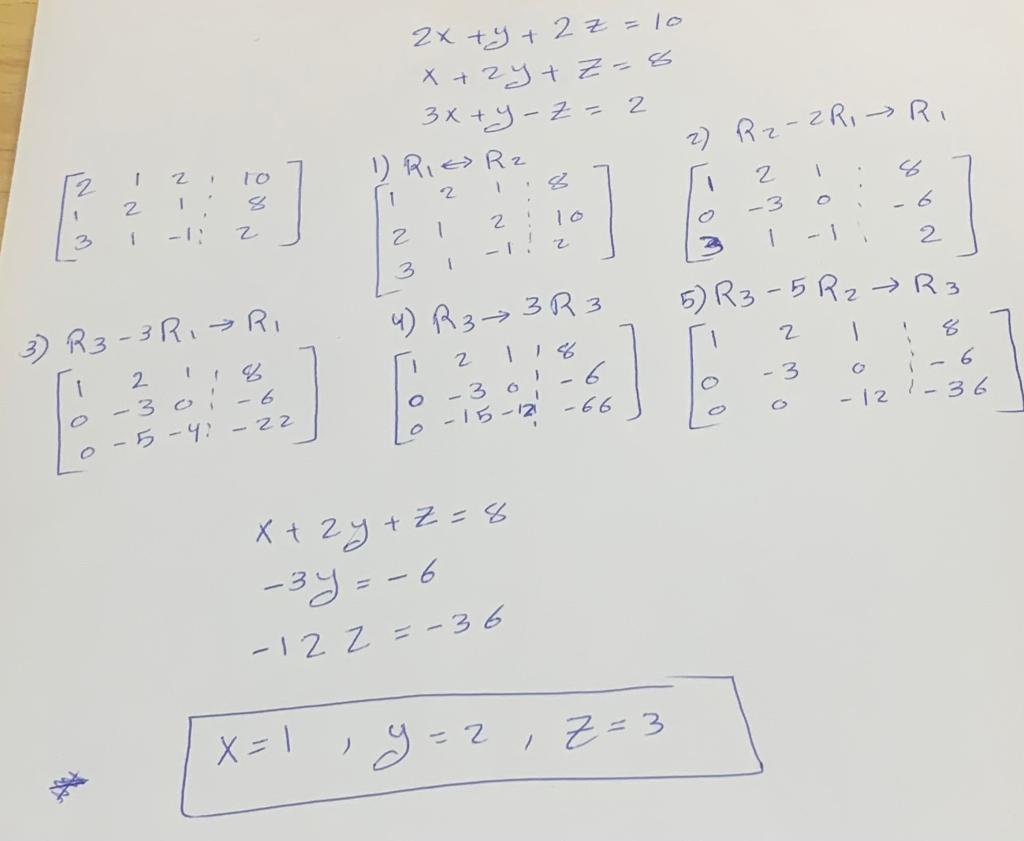 2x + y + 2z = 10
x + 2y + z = 8
3x + y - z = 2
[2 1 2 ⋮ 10
1 2 1 ⋮ 8
3 1 -1 ⋮ 2]
1) R₁ ↔ R₂
[1 2 1 ⋮ 8
2 1 2 ⋮ 10
3 1 -1 ⋮ 2]
2) R₂ - 2R₁ → R₁
[1 2 1 ⋮ 8
0 -3 0 ⋮ -6
3 1 -1 ⋮ 2]
3) R₃ - 3R₁ → R₁
[1 2 1 ⋮ 8
0 -3 0 ⋮ -6
0 -5 -4 ⋮ -22]
4) R₃ → 3R₃
[1 2 1 ⋮ 8
0 -3 0 ⋮ -6
0 -15 -12 ⋮ -66]
5) R₃ - 5R₂ → R₃
[1 2 1 ⋮ 8
0 -3 0 ⋮ -6
0 0 -12 ⋮ -36]
x + 2y + z = 8
-3y = -6
-12z = -36
x = 1 , y = 2 , z = 3